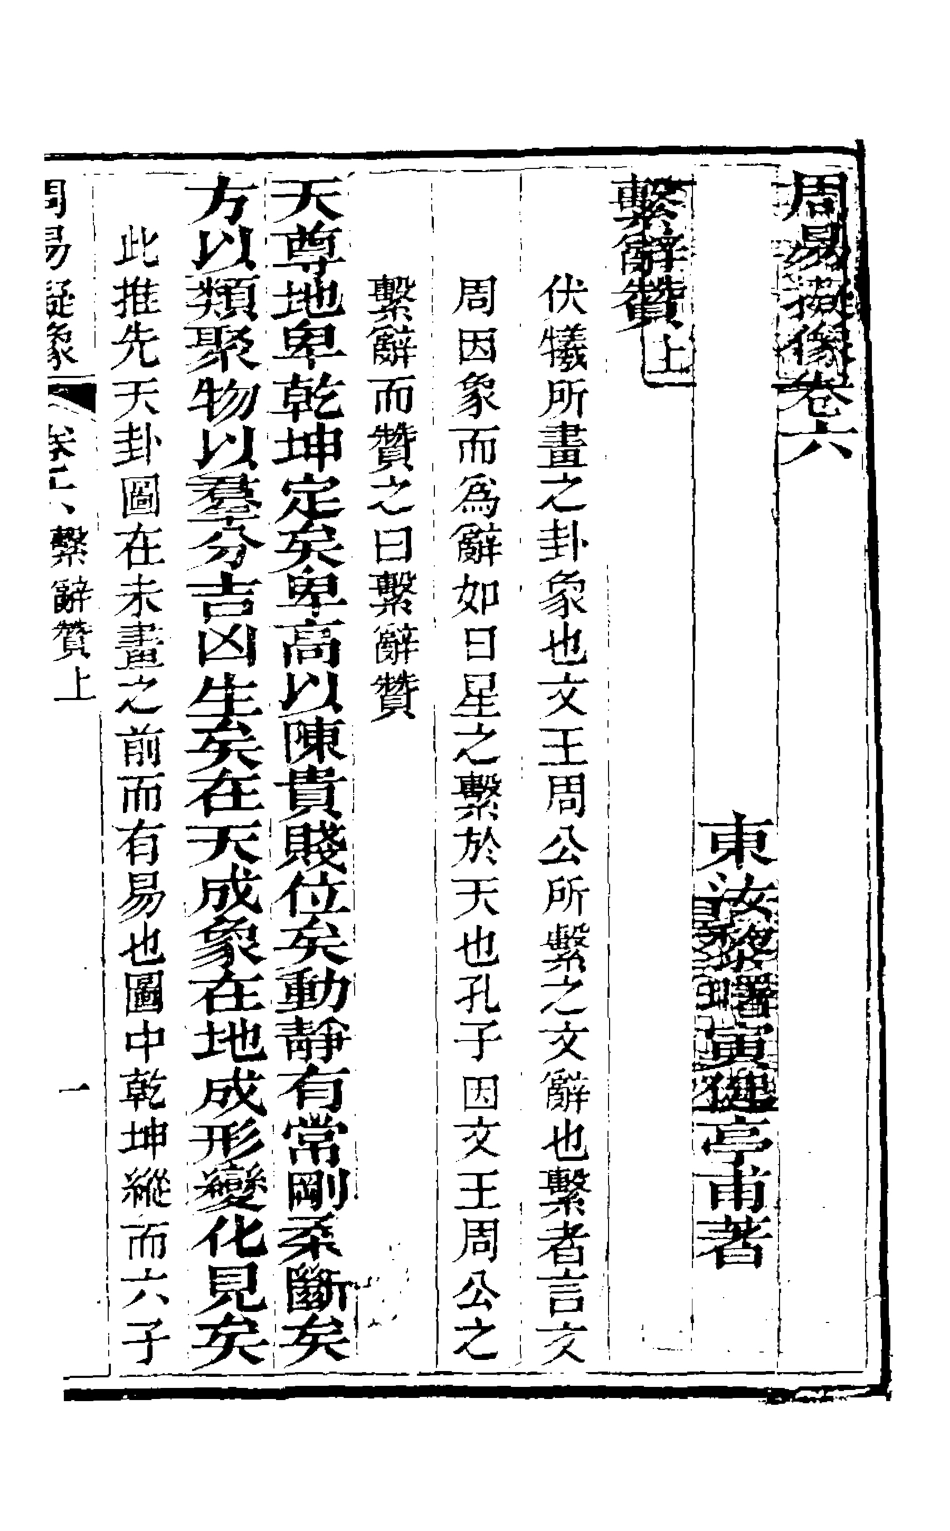 周易擬像卷六
東汝黎曙寅健亭甫著
繫辭贊上
伏犧所畫之卦象也文王周公所繫之文辭也繫者言文
周因象而爲辭如日星之繫於天也孔子因文王周公之
繫辭而贊之曰繫辭贊
天尊地卑乾坤定矣卑高以陳貴賤位矣動靜有常剛柔斷矣
方以類聚物以羣分吉凶生矣在天成象在地成形變化見矣
此推先天卦圖在未畫之前而有易也圖中乾坤縱而六子
周易擬象 卷六 繫辭贊上 一